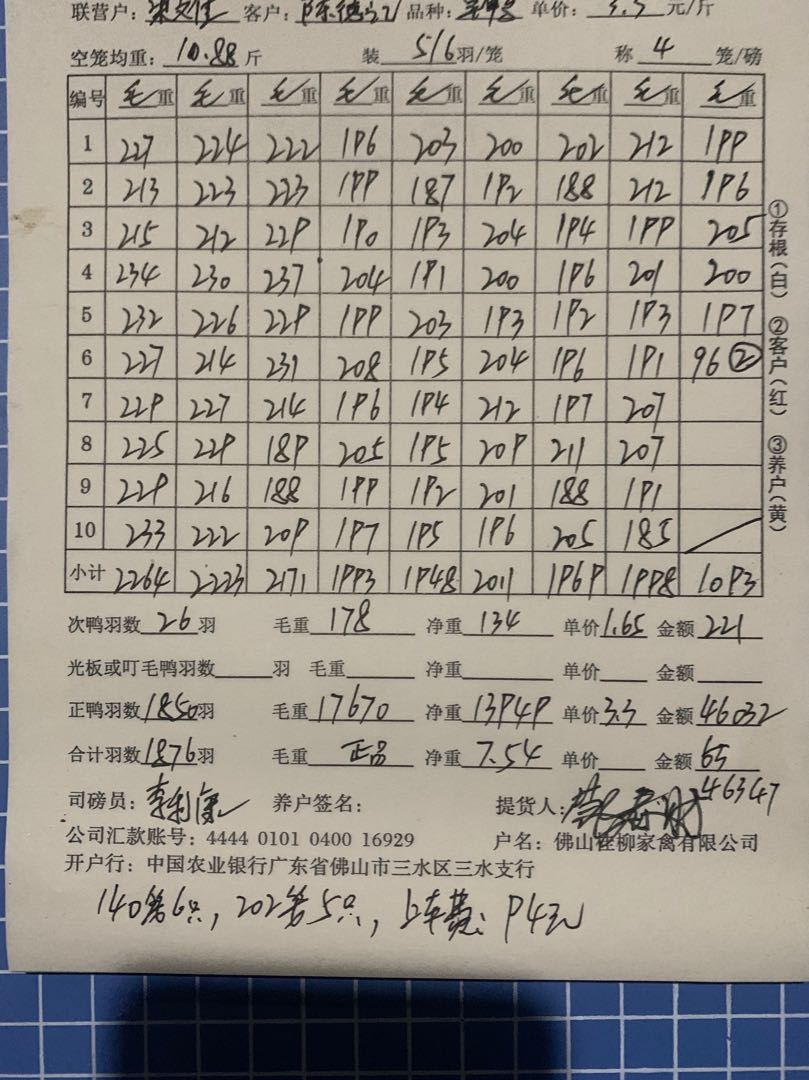 联营户： 客户： 品种： 单价：3.3 元/斤
空笼均重：10.88 斤 装 5/6 羽/笼 称 4 笼/磅
编号 毛重 毛重 毛重 毛重 毛重 毛重 毛重 毛重 毛重
1 227 224 222 196 203 200 202 212 199
2 213 223 223 199 187 192 188 212 196
3 215 212 229 190 193 204 194 199 205
4 234 230 237 204 191 200 196 201 200
5 232 226 229 199 203 193 192 193 197
6 227 214 231 208 195 204 196 191 96②
7 229 227 214 196 194 212 197 207
8 225 229 189 205 195 209 211 207
9 229 216 188 199 192 201 188 191
10 233 222 209 197 195 196 205 185
小计 2264 2223 2171 1993 1948 2011 1969 1998 1093
次鸭羽数 26 羽 毛重 178 净重 134 单价 1.65 金额 221
光板或叮毛鸭羽数 羽 毛重 净重 单价 金额
正鸭羽数 1850 羽 毛重 17670 净重 13949 单价 3.3 金额 46032
合计羽数 1876 羽 毛重 正品 净重 7.54 单价 金额 65
46347
司磅员： 养户签名： 提货人：
公司汇款账号：4444 0101 0400 16929 户名：佛山桂柳家禽有限公司
开户行：中国农业银行广东省佛山市三水区三水支行
140笼6只，202笼5只，上车费：94元
①存根（白） ②客户（红） ③养户（黄）